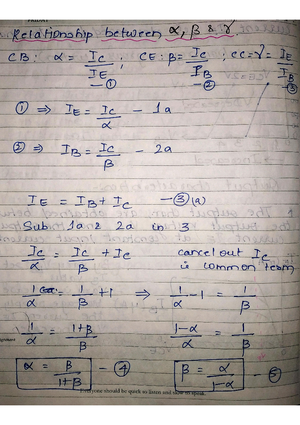 Relationship between α, β & γ
CB: α = Ic/IE —① ; CE: β = Ic/IB —② ; CC = γ = IE/IB —③
① ⇒ IE = Ic/α – 1a
② ⇒ IB = Ic/β – 2a
IE = IB + Ic —③(a)
Sub 1a & 2a in 3
Ic/α = Ic/β + Ic cancel out Ic
is common team
1/α = 1/β + 1 ⇒ 1/α – 1 = 1/β
1/α = 1+β/β 1–α/α = 1/β
α = β/1+β —④ β = α/1–α —⑤
Everyone should be quick to listen and slow to speak.